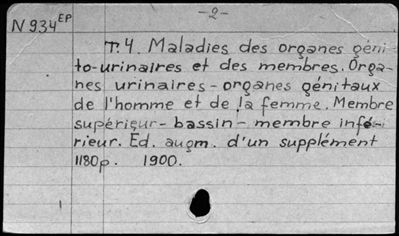 -2-
N 934 EP
T. 4. Maladies des organes géni-
to-urinaires et des membres. Orga-
nes urinaires - organes génitaux
de l'homme et de la femme. Membre
supérieur - bassin - membre infé-
rieur. Ed. augm. d'un supplément
1180p. 1900.
1